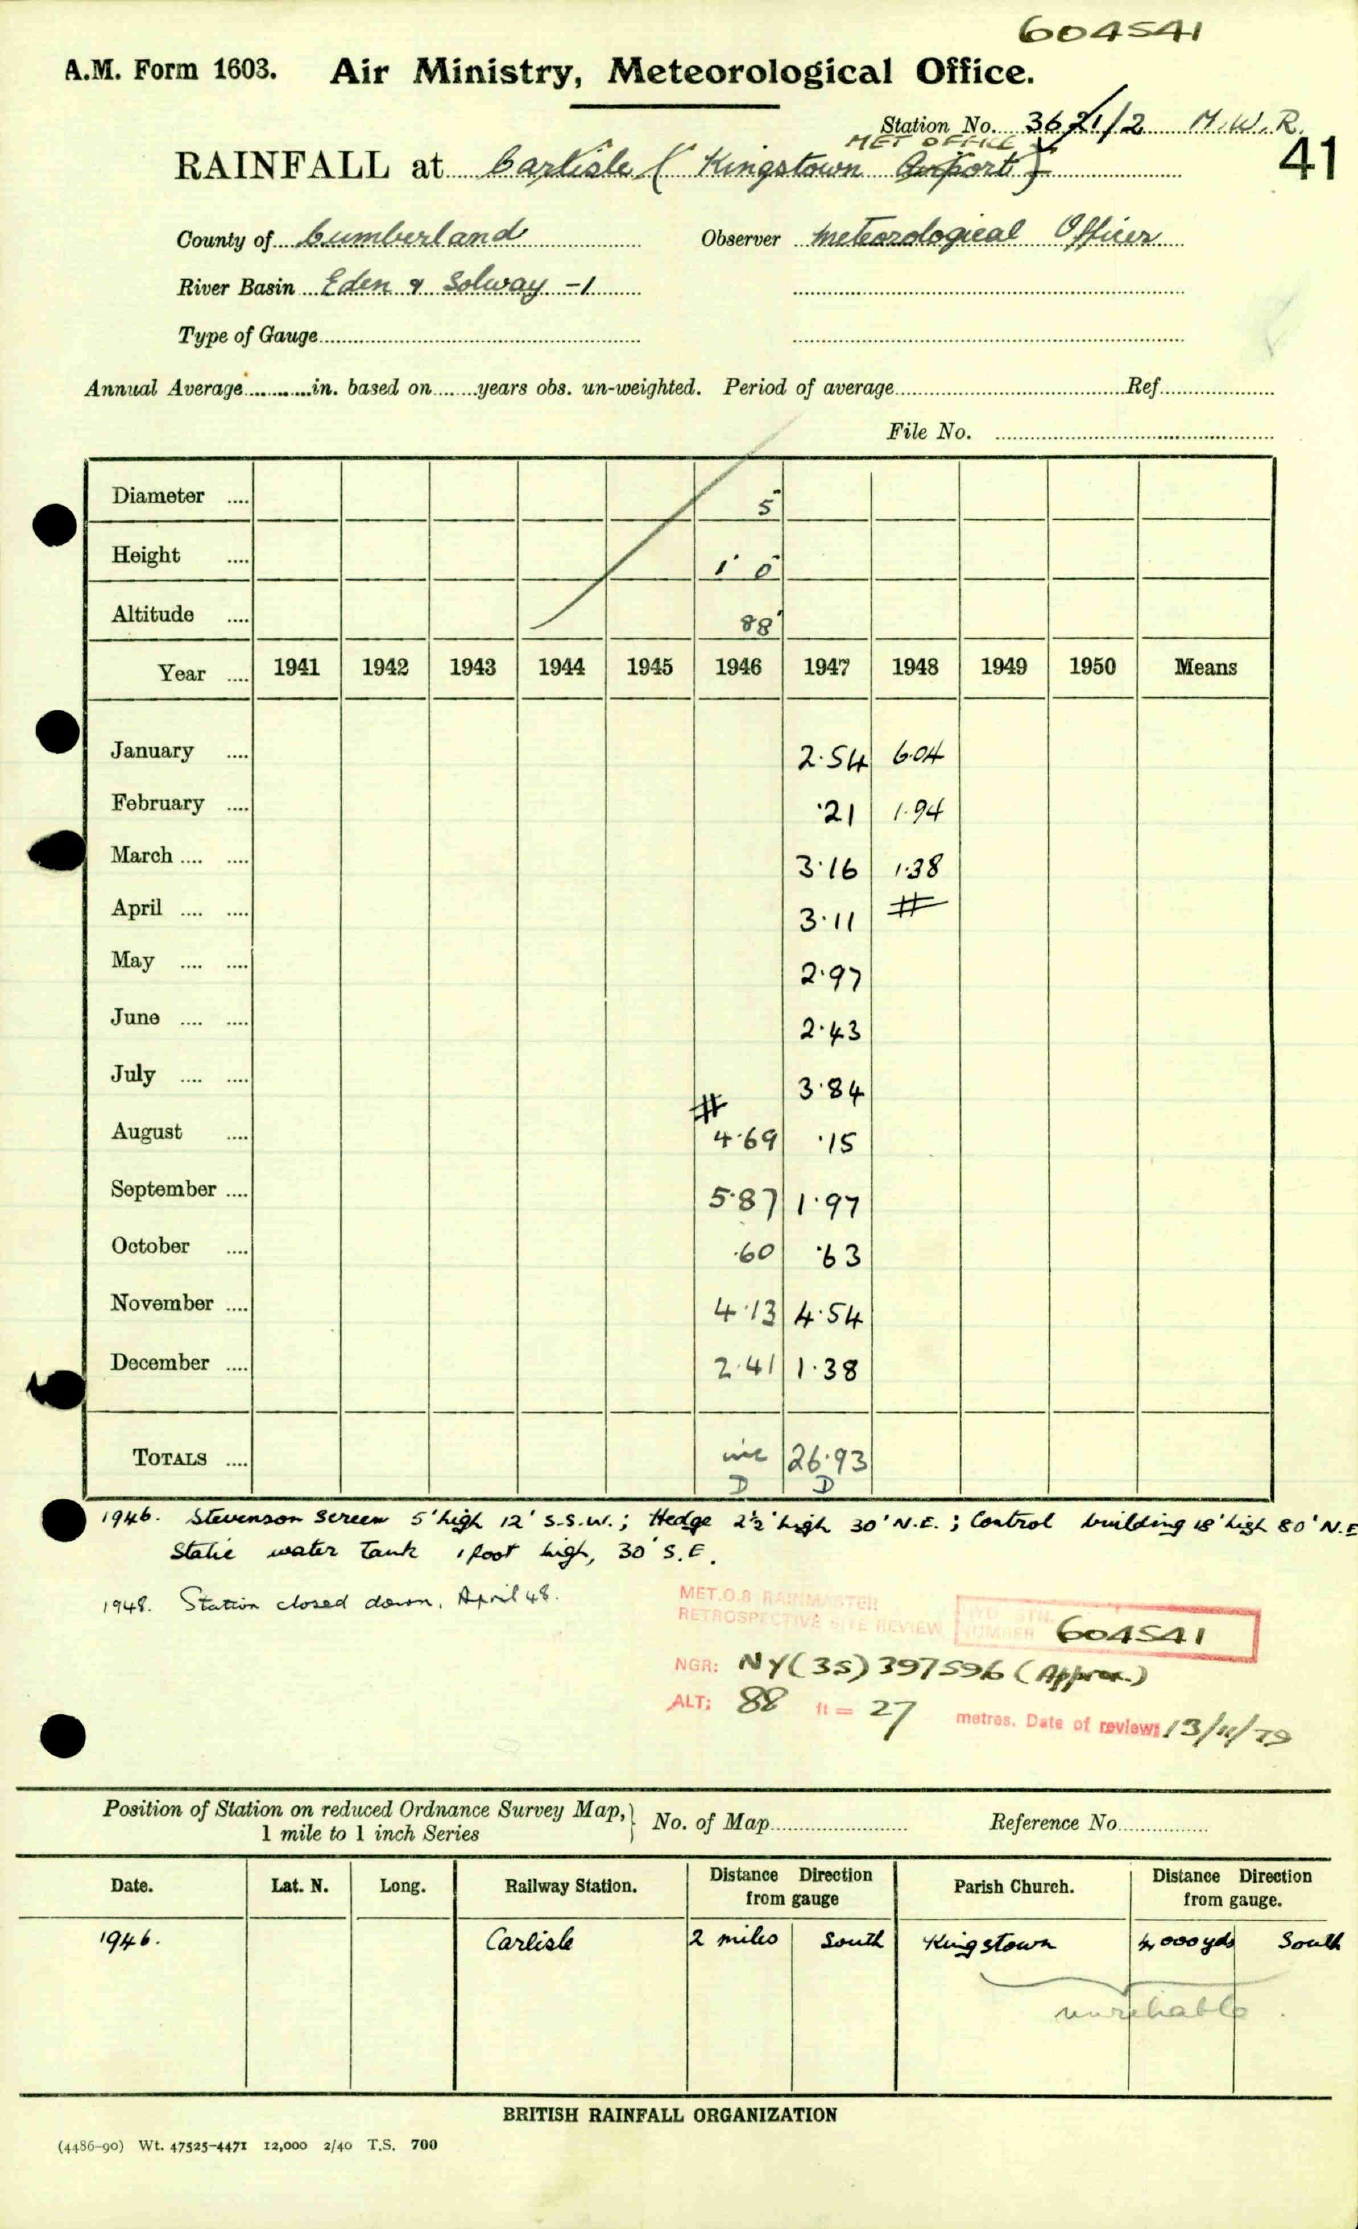 604541
A.M. Form 1603. Air Ministry, Meteorological Office.
Station No. 3621/2 M.W.R.
MET OFFICE
RAINFALL at Carlisle ( Kingstown Airport )
41
County of Cumberland Observer Meteorological Officer
River Basin Eden & Solway -1
Type of Gauge
Annual Average in. based on years obs. un-weighted. Period of average Ref.
File No.
Diameter .... 5"
Height .... 1' 0"
Altitude .... 88'
Year .... 1941 1942 1943 1944 1945 1946 1947 1948 1949 1950 Means
January .... 2.54 6.04
February .... .21 1.94
March .... .... 3.16 1.38
April .... .... 3.11 #
May .... .... 2.97
June .... .... 2.43
July .... .... 3.84
#
August .... 4.69 .15
September .... 5.87 1.97
October .... .60 .63
November .... 4.13 4.54
December .... 2.41 1.38
TOTALS .... inc 26.93
D D
1946. Stevenson Screen 5' high 12' S.S.W.; Hedge 2½' high 30' N.E.; Control building 18' high 80' N.E
Static water tank 1 foot high, 30' S.E.
1948. Station closed down, April 48.
MET.O.8 RAINMASTER
RETROSPECTIVE SITE REVIEW
HYD STN.
NUMBER 604541
NGR: NY(35)397596 (Approx.)
ALT: 88 ft = 27 metres. Date of review: 13/11/79
Position of Station on reduced Ordnance Survey Map, 1 mile to 1 inch Series } No. of Map Reference No
Date. Lat. N. Long. Railway Station. Distance Direction from gauge Parish Church. Distance Direction from gauge.
1946. Carlisle 2 miles South Kingstown 4,000 yds South
unreliable.
BRITISH RAINFALL ORGANIZATION
(4486-90) Wt. 47525-4471 12,000 2/40 T.S. 700